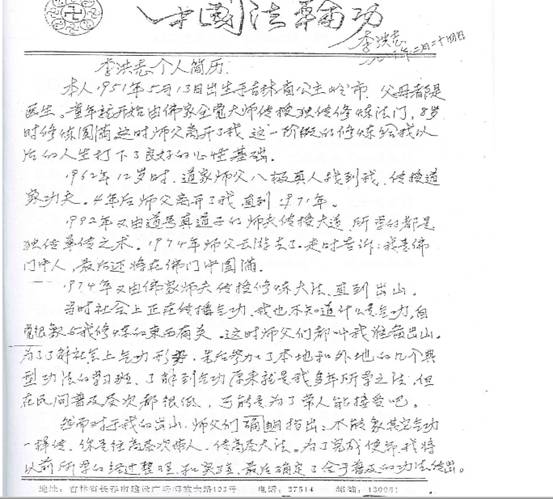 中國法輪功
李洪志
二月二十四日
李洪志个人简历
本人1951年5月13日出生于吉林省公主岭市,父母都是
医生。童年就开始由佛家全觉大师传授独传修炼法门,8岁
时修炼圆满这时师父离开了我 这一阶段的修炼给我以
后的人生打下了良好的心性基础。
1962年12岁时,道家师父八极真人找到我,传授道
家功夫。4年后师父离开了我 直到1971年。
又由道号真道子的师父传授大道,所学的都是
独传单传之术。1974年师父云游去了 走时告诉:我是佛
门中人,最后还将在佛门中圆满。
1974年又由佛家师父传授修炼大法,直到出山。
当时社会上正在传播气功,我也不知道什么是气功,自
我修炼的东西有关。这时师父们都叫我准备出山。
为了了解社会上气功形势,先后参加了本地和外地的几个典
型功法的学习班,了解到气功原来就是我多年所学之法,但
在民间普及层次都很低,可能是为了常人能接受吧。
对于我的出山,师父们明确指出:不能象其它气功
一样传,你是往高层次带人,传高层大法。为了完成使命,我将
以前所学的经过整理和实践,最后确定了合于普及的功法传出。
地址:吉林省长春市建设广场 电话:27514 邮编:130061